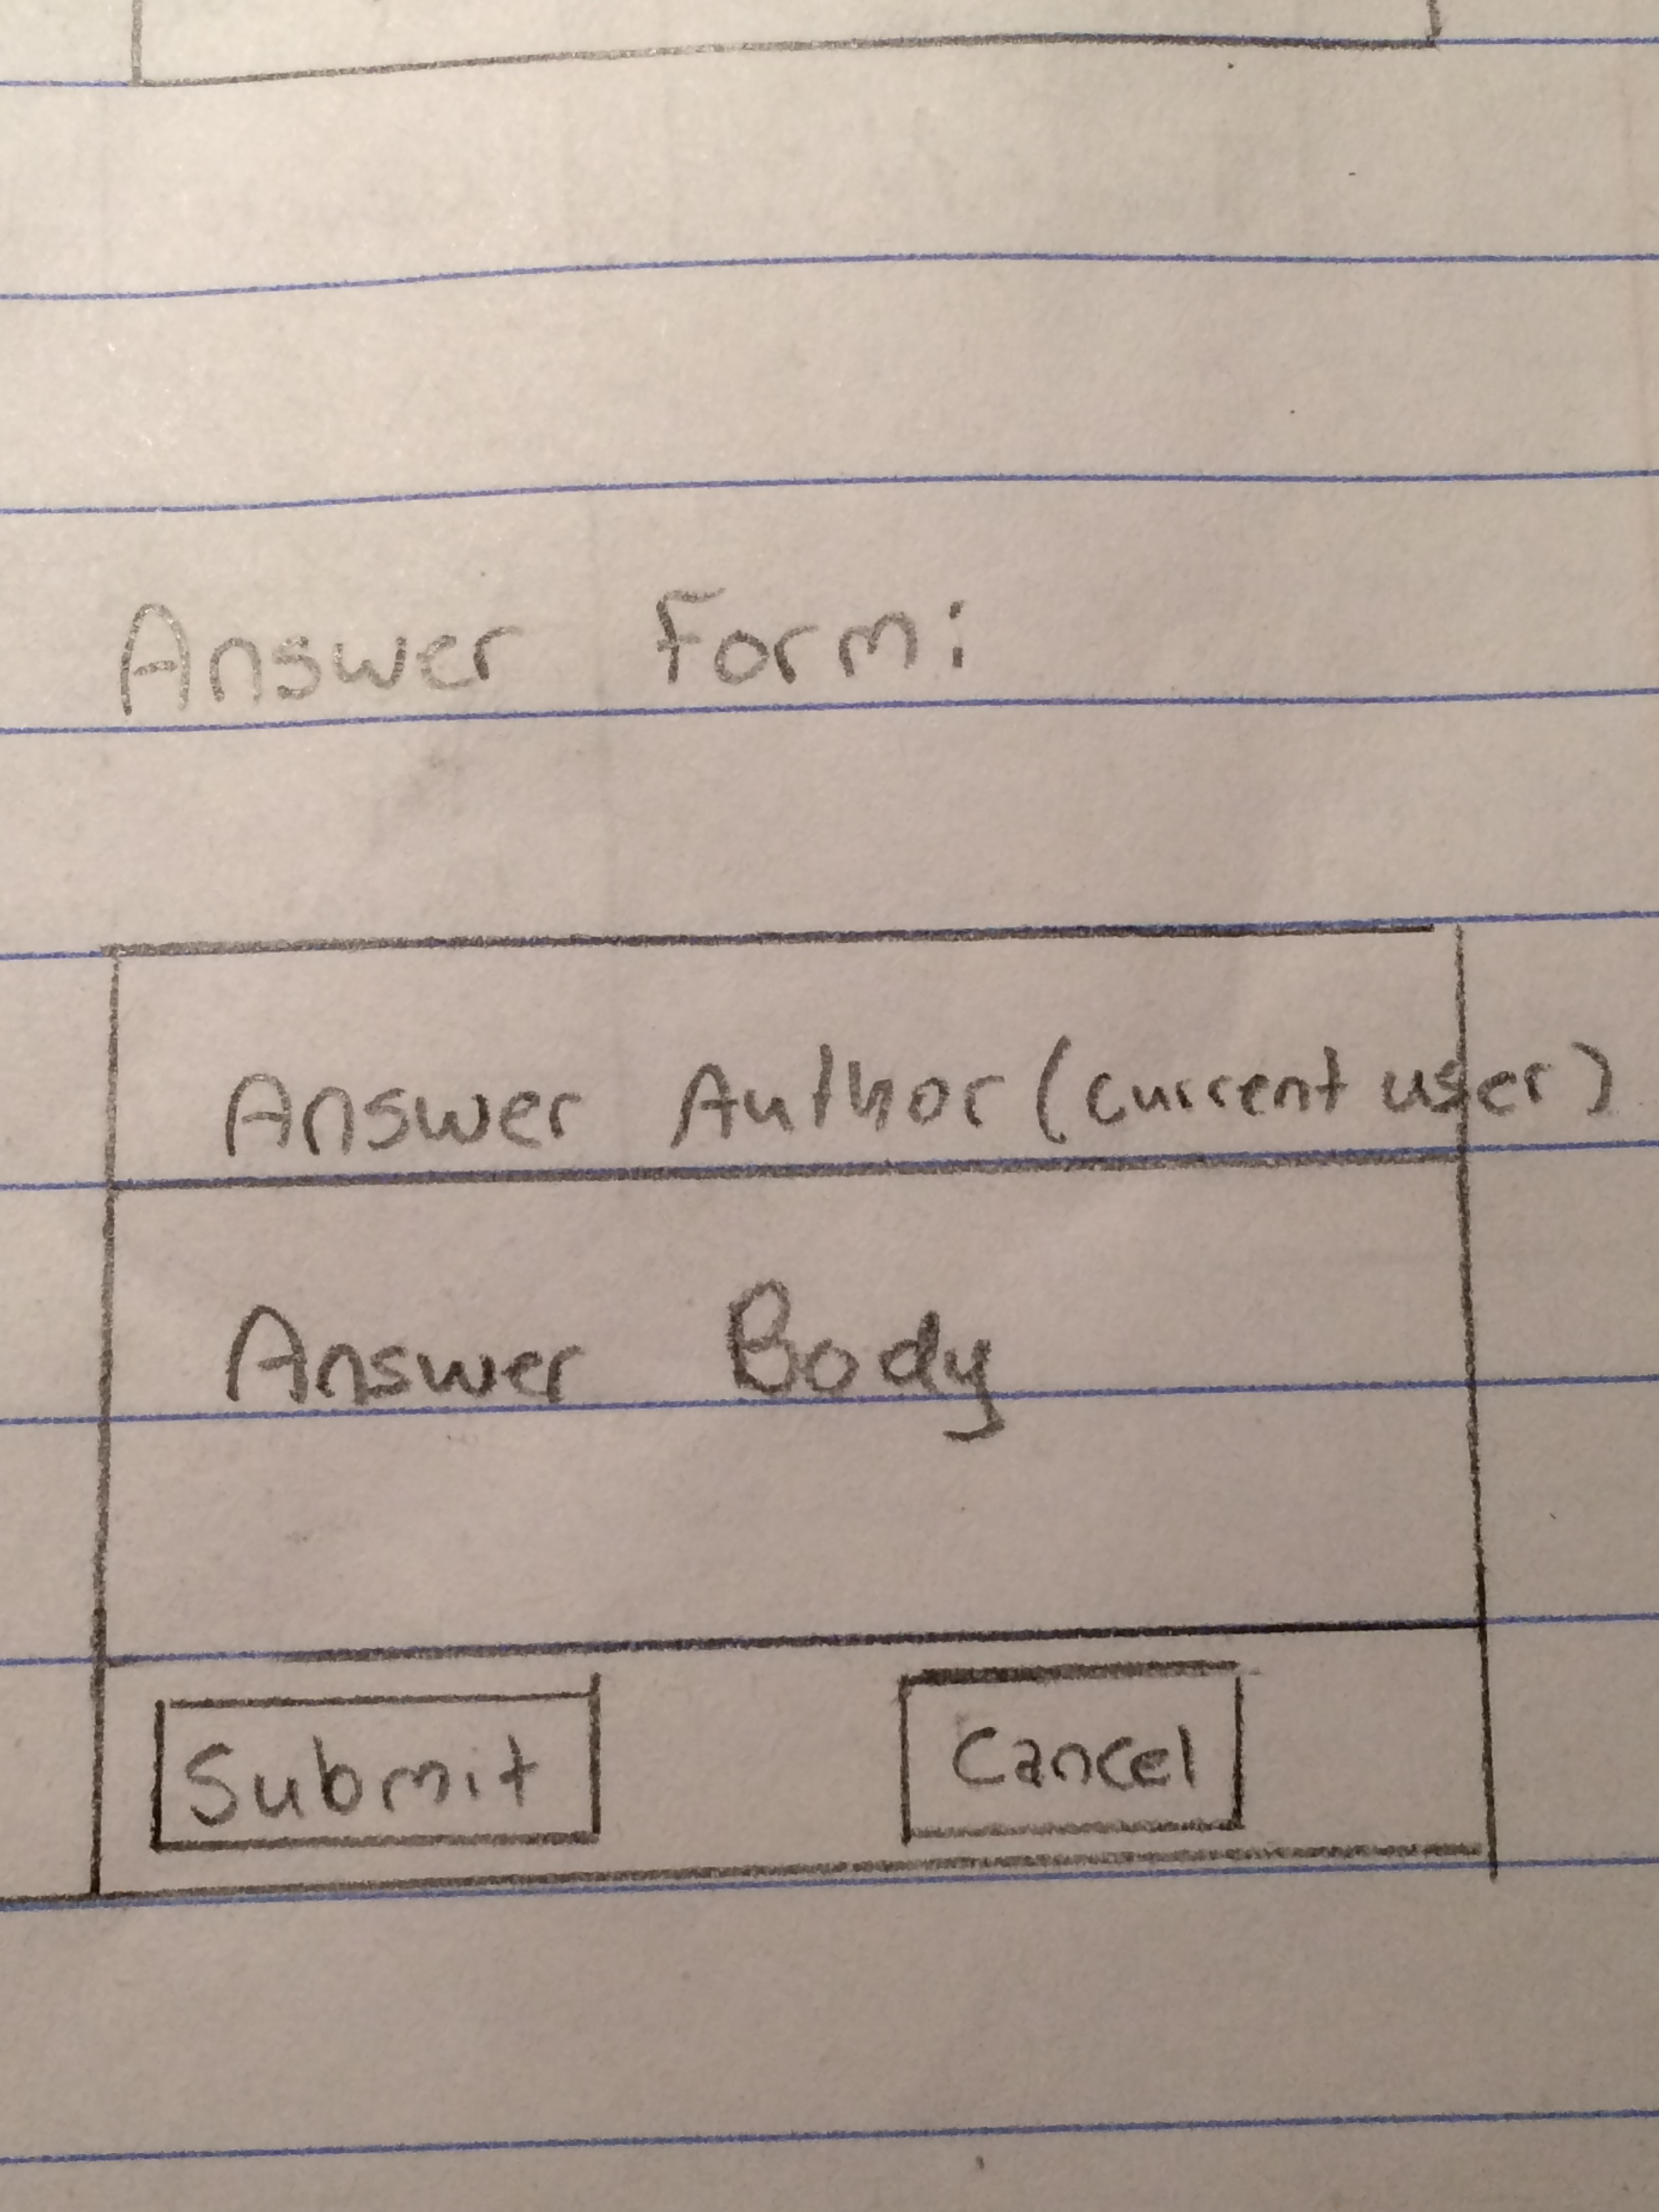 Answer Form:
Answer Author (current user)
Answer Body
Submit Cancel